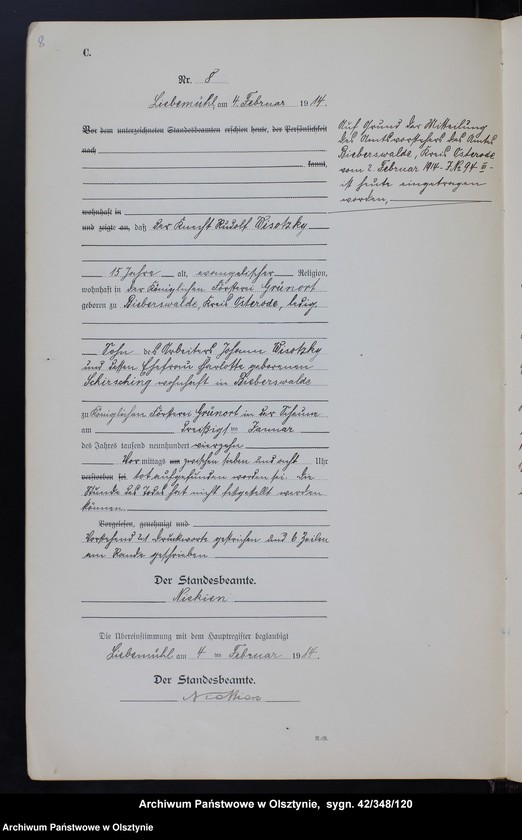 8
C.
Nr. 8
Liebemühl, am 4. Februar 1914.
Vor dem unterzeichneten Standesbeamten erschien heute, der Persönlichkeit
nach
kannt,
wohnhaft in
und zeigte an, daß der Knecht Rudolf Wisotzky
15 Jahre alt, evangelischer Religion,
wohnhaft in der Königlichen Försterei Grünort
geboren zu Bieberswalde, Kreis Osterode, ledig,
Sohn des Arbeiters Johann Wisotzky
und dessen Ehefrau Charlotte geborenen
Schirsching wohnhaft in Bieberswalde
zu Königlichen Försterei Grünort in der Scheune
am dreißigsten Januar
des Jahres tausend neunhundert vierzehn
Vor mittags um zwischen sieben und acht Uhr
verstorben sei tot aufgefunden worden sei. Die
Stunde des Todes hat nicht festgestellt werden
können.
Vorgelesen, genehmigt und
Vorstehend 21 Druckworte gestrichen und 6 Zeilen
am Rande geschrieben
Der Standesbeamte.
Die Übereinstimmung mit dem Hauptregister beglaubigt
Liebemühl am 4 ten Februar 1914.
Der Standesbeamte.
Auf Grund der Mitteilung
des Amtsvorstehers des Amtes
Bieberswalde, Kreis Osterode
vom 2. Februar 1914 - J. № 94 II -
ist heute eingetragen
worden.
Archiwum Państwowe w Olsztynie, sygn. 42/348/120
Archiwum Państwowe w Olsztynie